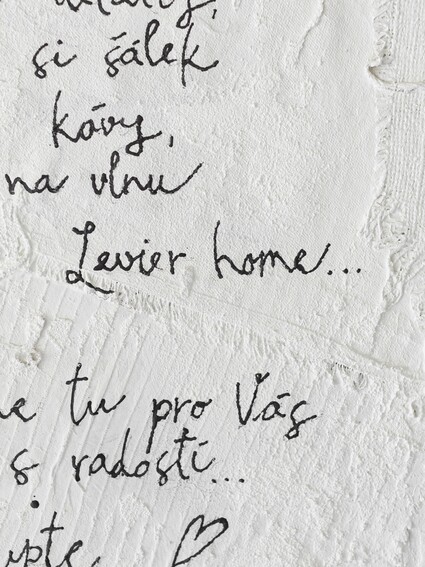 si šálek
kávy,
na vlnu
Levier home...
tu pro Vás
s radostí...